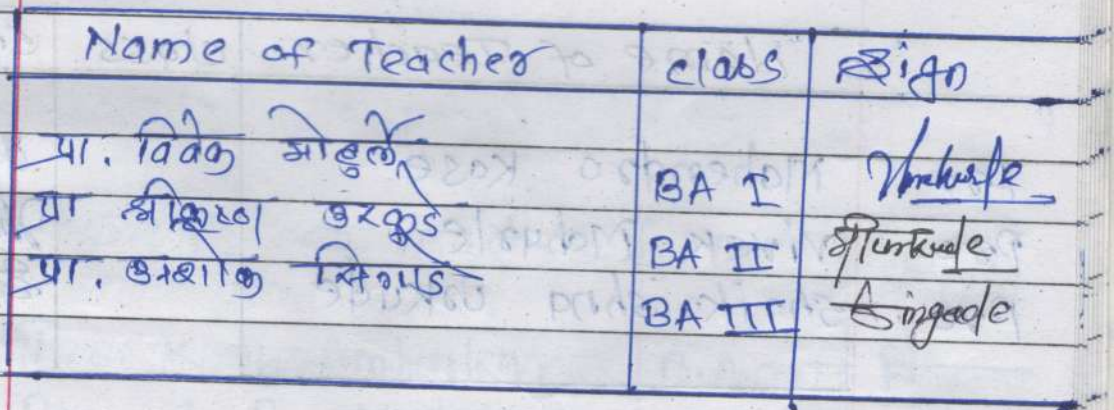 Name of Teacher class Sign
प्रा. विवेक मोहुर्ले BA I
प्रा श्रीकृष्ण उरकुडे BA II
प्रा. अशोक सिंगाडे BA III Singade